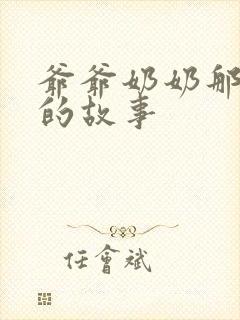 爺爺奶奶那
的故事
任會斌